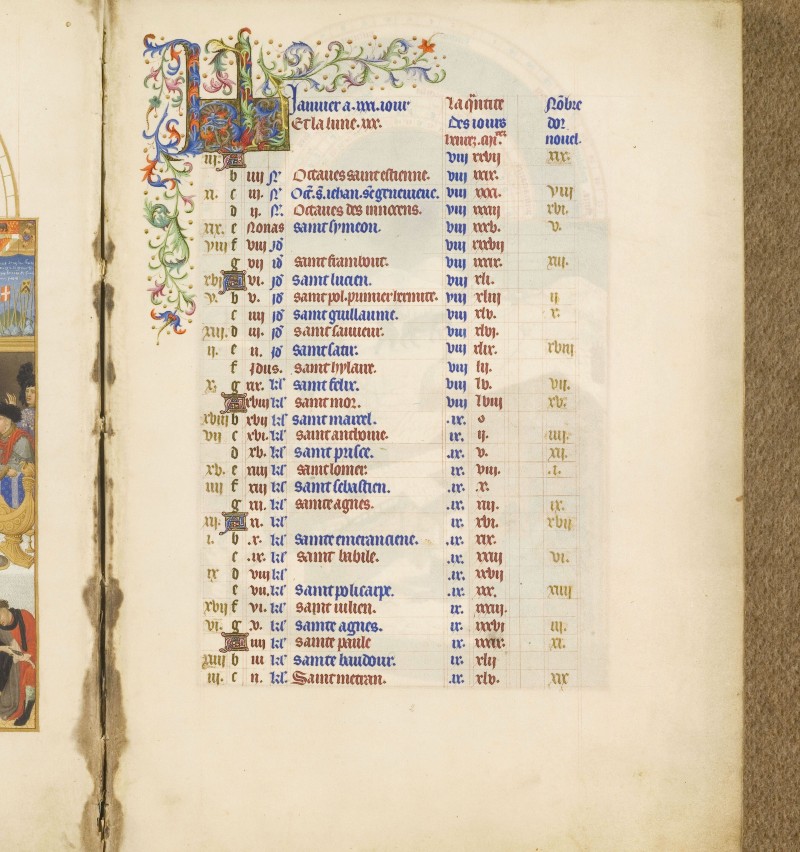 Januier a .xxxi. iour La q̃ntite Nõbre
Et la lune .xxx. Des iours dor
heures. nouel.
iii. A viii xxvii xix.
b iiii N̊ Octaues saint estienne. viii xxix.
xi. c iii. N̊ Oct̃. s̃. iehan. s̃te geneuieue. viii xxxi. viii
d ii. N̊. Octaues des innocens. viii xxxiii xvi.
xix. e Nonas saint symeon. viii xxxv. v.
viii f viii id̃ viii xxxvii
g vii id̃ saint frambout. viii xxxix. xiii.
xvi A vi. id̃ saint lucien. viii xli.
v. b v. id̃ saint pol. pumier hermite. viii xliii ii
c iiii id̃ saint guillaume. viii xlv. x.
xiii. d iii. id̃ saint sauueur. viii xlvi.
ii. e ii. id̃ saint satir. viii xlix. xviii
f Jdus. saint hylaire. viii lii.
x. g xix. kl̃ saint felix. viii lv. vii.
A xviii kl̃ saint mor. viii lviii xv.
xviii b xvii kl̃ saint marcel. .ix. o
vii c xvi. kl̃ saint anthoine. ix. ii. iiii.
d xv. kl̃ saint prisce. .ix. v. xii.
xv. e xiiii kl̃ saint lomer. ix. viii. .i.
iiii f xiii kl̃ saint sebastien. .ix. .x.
g xii. kl̃ sainte agnes. .ix. xiii. ix.
xii. A xi. kl̃ ix xvi. xvii
i. b .x. kl̃ sainte emeranciene. .ix. xix.
c .ix. kl̃ saint babile. .ix. xxiii vi.
ix d viii kl̃ .ix. xxvii
e vii. kl̃ Saint policarpe. .ix. xxx. xiiii
xvii f vi. kl̃ saint iulien. ix. xxxiii.
vi. g .v. kl̃ sainte agnes. ix. xxxvi iii.
A iiii kl̃ sainte paule ix. xxxix. xi.
xiiii b iii kl̃ sainte baudour. ix. xlii
iii. c ii. kl̃. Saint metran. .ix. xlv. xix